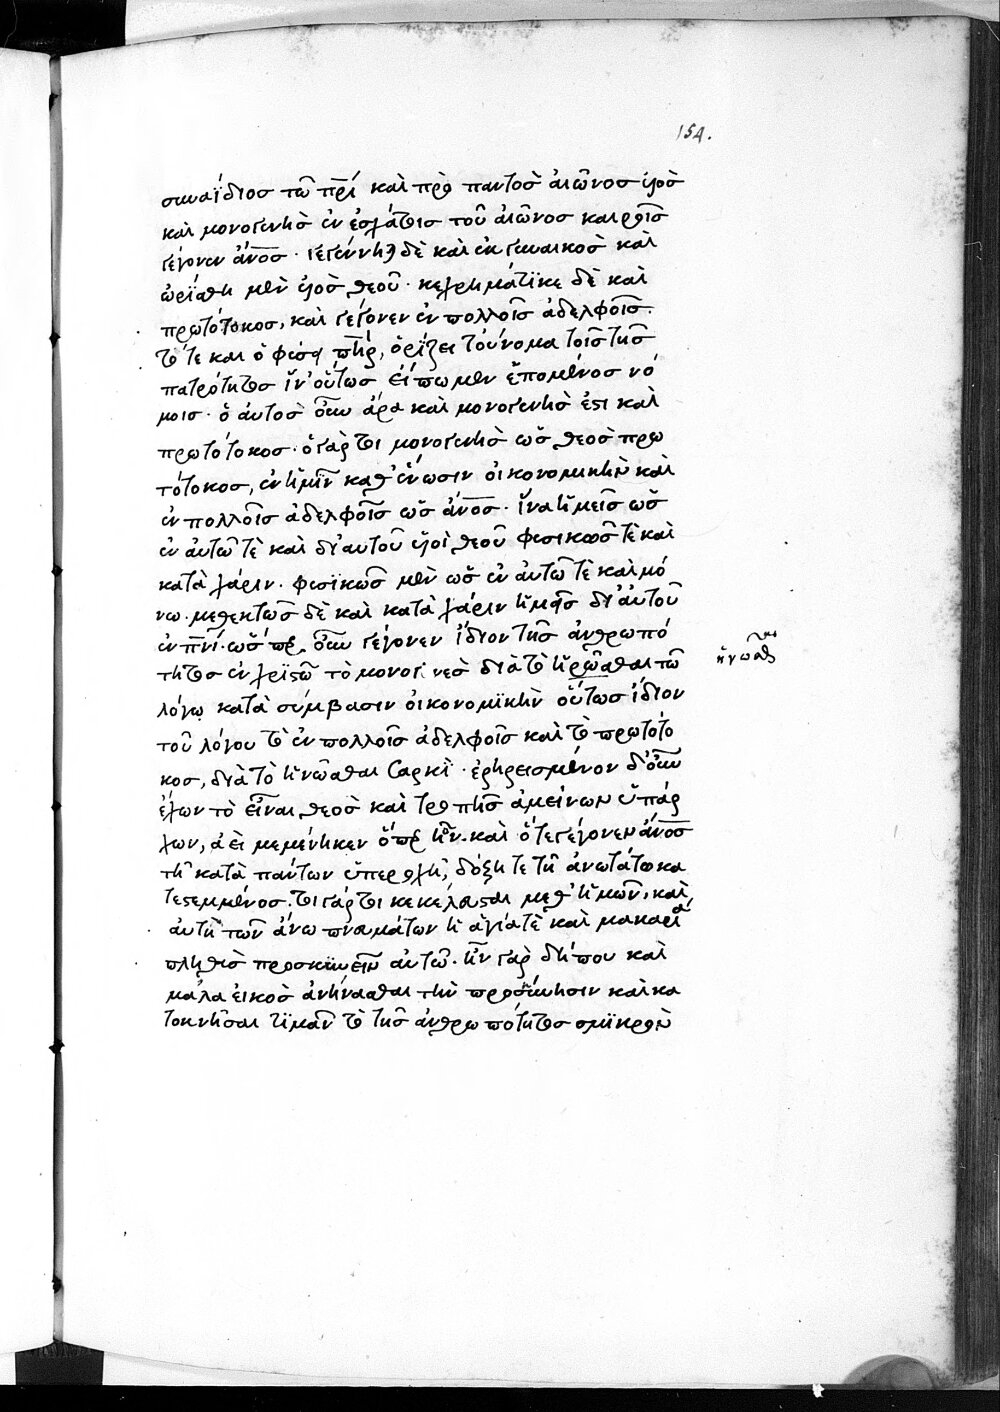 154.
συναΐδιος τῶ πρὶ καὶ πρὸ παντὸς αἰῶνος υἱὸς
καὶ μονογενὴς ἐν ἐσχάτοις τοῦ αἰῶνος καιροῖς
γέγονεν ἄνος · γεγέννηται δὲ καὶ ἐκ γυναικὸς καὶ
ὡρίσθη μὲν υἱὸς θεοῦ · κεχρημάτϊκε δὲ καὶ
πρωτότοκος, καὶ γέγονεν ἐν πολλοῖς ἀδελφοῖς.
τότε και ὁ φύσει πὴρ, ὁρίζει τοὔνομα τοῖς τῆς
πατρότητος ἵν' οὕτως εἴπωμεν ἑπομένος νό
μοις · ὁ αὐτὸς οὖν ἄρα καὶ μονογενὴς ἐστι καὶ
πρωτότοκος · ὁ γάρ τοι μονογενὴς ὡς θεὸς πρω
τότοκος, ἐν ἡμῖν καθ' ἕνωσιν οἰκονομικὴν καὶ
ἐν πολλοῖς ἀδελφοῖς ὡς ἄνος · ἵνα ἡμεῖς ὡς
ἐν αὐτῶ τὲ καὶ δι' αυτοῦ υἱοὶ θεοῦ φυσικῶς τὲ καὶ
κατὰ χάριν · φυσϊκῶς μὲν ὡς ἐν αὐτῶ τὲ καὶ μό
νω · μεθεκτῶς δὲ καὶ κατὰ χάριν ἡμεῖς δι' αὐτοῦ
ἐν πνί · ὥσπερ οὖν γέγονεν ἴδιον τῆς ἀνθρωπό
τητος ἐν χριστῶ τὸ μονογενὲς διὰ τὸ ἡρῶσθαι τῶ
ἡνῶσθαι
λόγω κατὰ σύμβασιν οἰκονομϊκὴν οὕτως ἴδιον
τοῦ λόγου τὸ ἐν πολλοῖς ἀδελφοῖς καὶ τὸ πρωτότο
κος, διὰ τὸ ἡνῶσθαι σαρκὶ · ἐρηρεισμένον δ' οὖν
ἔχων τὸ εἶναι θεὸς καὶ τροπῆς ἀμείνων ὑπάρ
χων, ἀεὶ μεμένηκεν ὅπερ ἦν · καὶ ὅτε γέγονεν ἄνος
τῆ κατὰ πάντων ὑπεροχῆ, δόξη τε τῆ ἀνωτάτω κα
τεστεμμένος. τοιγάρτοι κεκέλευσται μεθ' ἡμῶν, καὶ
αὐτὴ τῶν ἄνω πνευμάτων ἡ ἁγία τὲ καὶ μακαρία
πληθὺς προσκϋνεῖν αὐτῶ · ἦν γὰρ δήπου καὶ
μάλα εἰκὸς ἀνήνασθαι τὴν προσκύνησιν καὶ κα
τοκνῆσαι τϊμᾶν τὸ τῆς ἀνθρωπότητος σμϊκρὸν